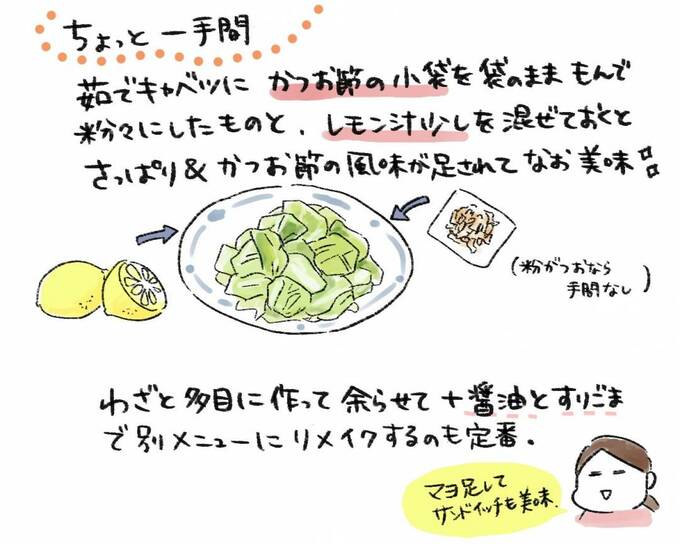 ちょっと一手間
茹でキャベツに かつお節の小袋を袋のままもんで
粉々にしたものと、レモン汁少しを混ぜておくと
さっぱり&かつお節の風味が足されてなお美味
(粉がつおなら
手間なし)
わざと多目に作って余らせて+醤油とすりごま
で別メニューにリメイクするのも定番。
マヨ足して
サンドイッチも美味.